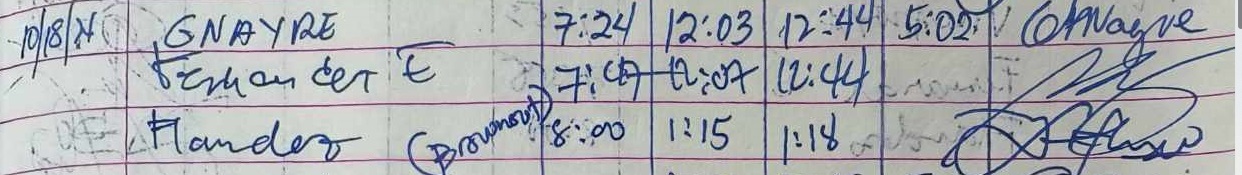 10/18/21 GNAYRE 7:24 12:03 12:44 5:02
Fernandez E 7:47 12:07 12:44
Flandez 8:00 1:15 1:18